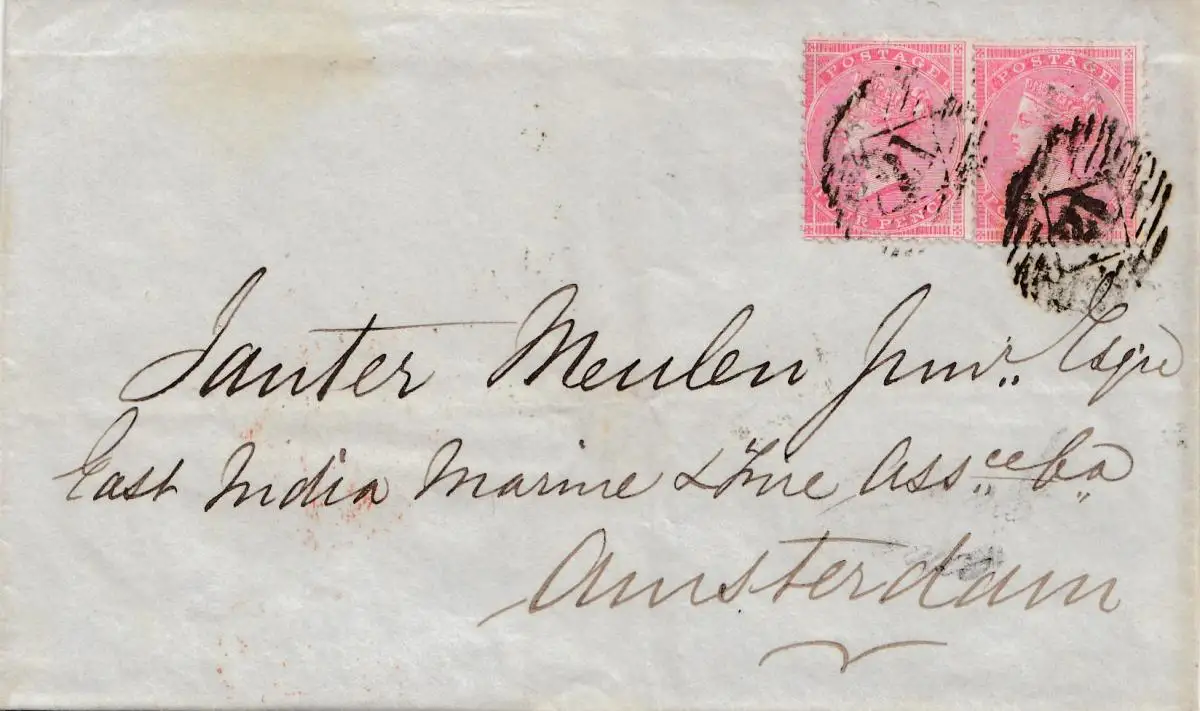 POSTAGE POSTAGE
FOUR PENCE
Janter Meulen Junr. Esqre
East India Marine & Fire Assce Co
Amsterdam